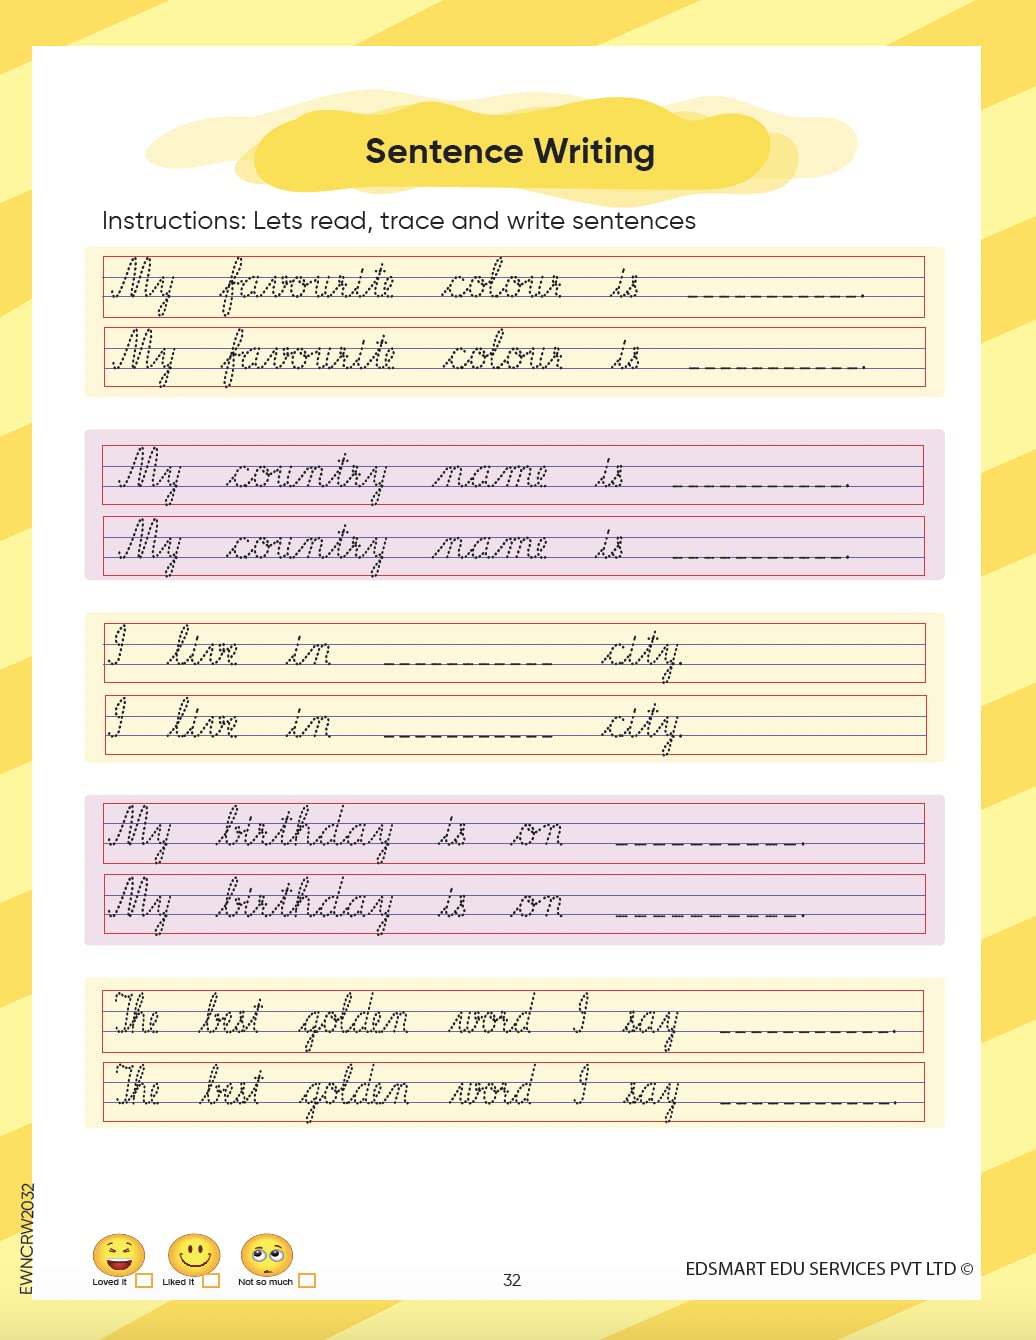 Sentence Writing
Instructions: Lets read, trace and write sentences
My favourite colour is __________.
My favourite colour is __________.
My country name is __________.
My country name is __________.
I live in __________ city.
I live in __________ city.
My birthday is on __________.
My birthday is on __________.
The best golden word I say __________.
The best golden word I say __________.
EWNCRW2032
Loved it Liked it Not so much
32
EDSMART EDU SERVICES PVT LTD ©